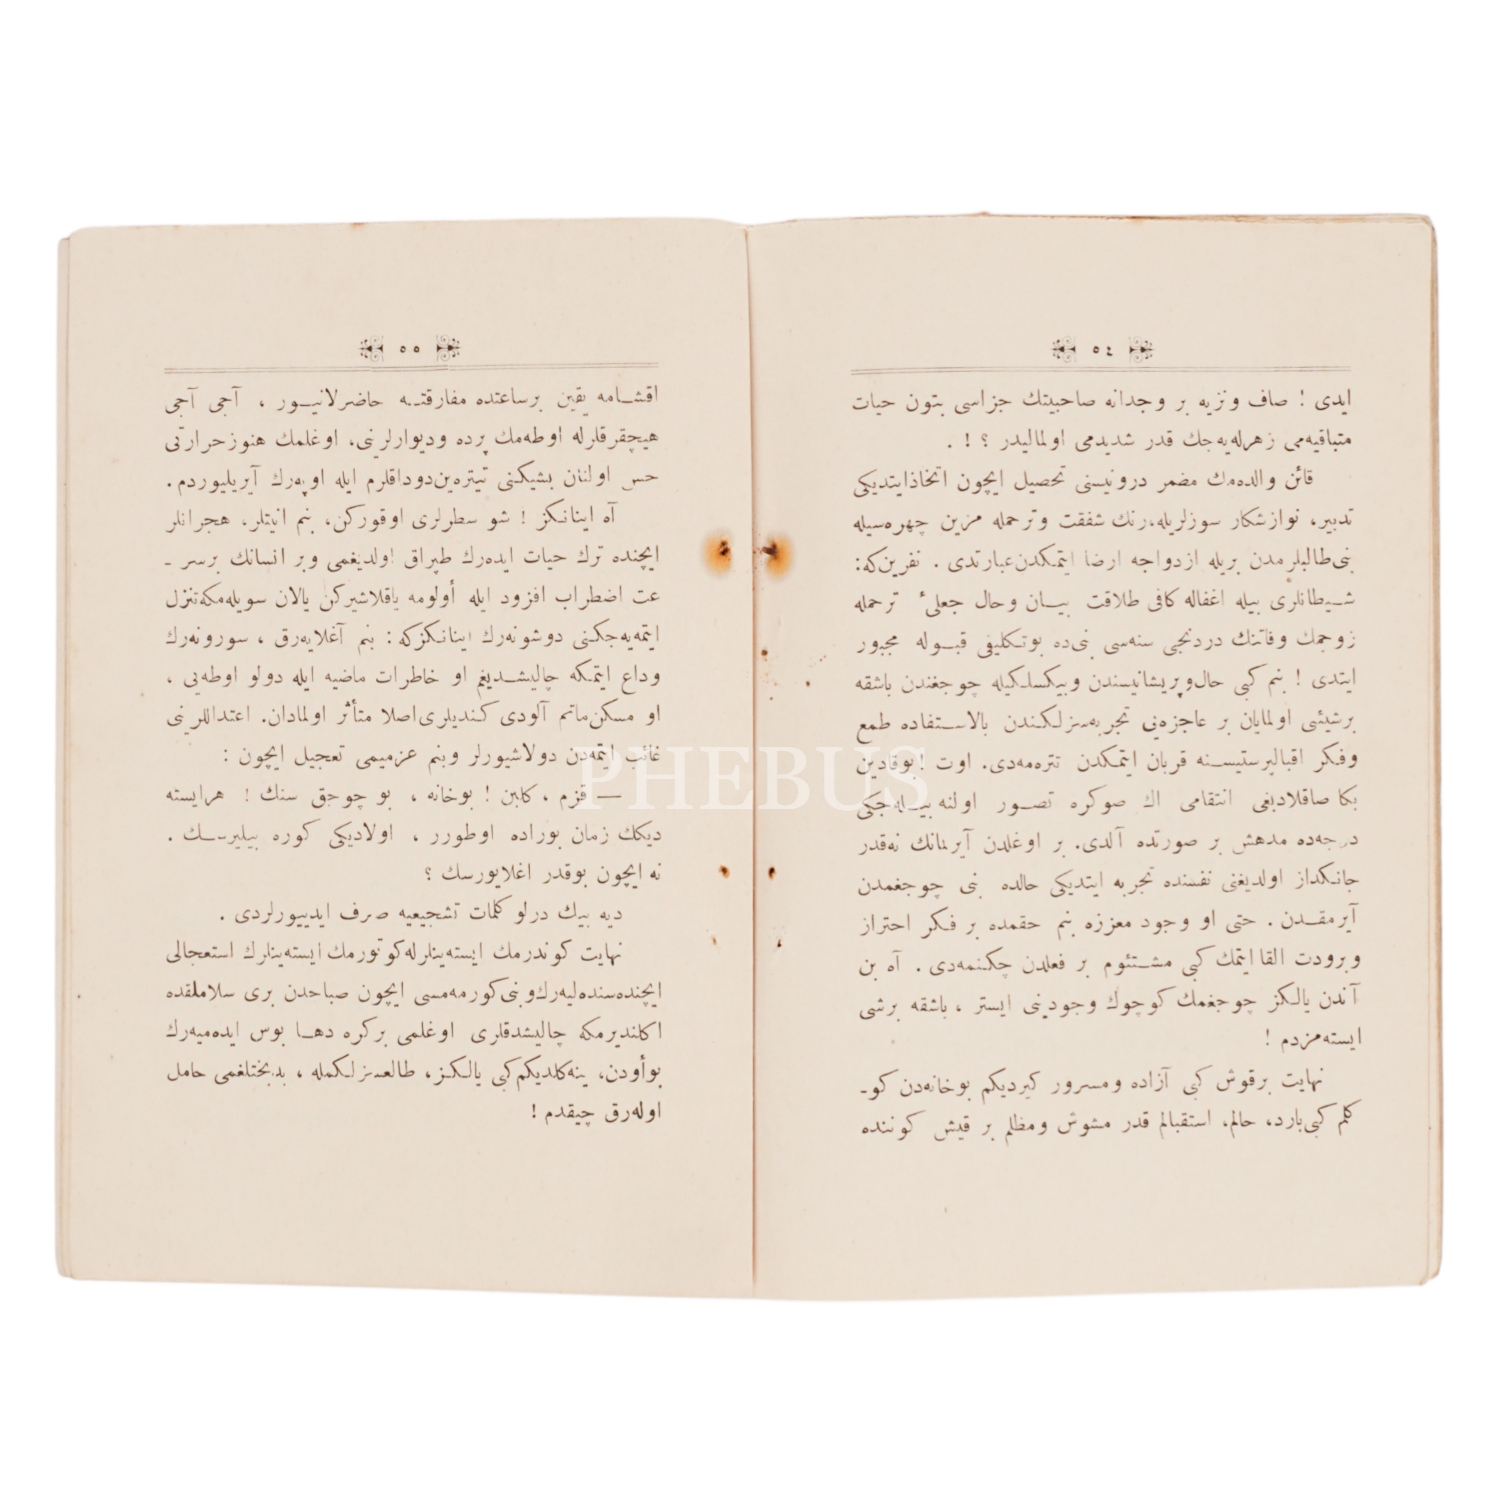 ٥٤
ایدی ! صاف و نزیه بر وجدانه صاحبیتك جزاسی بتون حیات
متباقیه‌می زهرله‌یه‌جك قدر شدیدمی اولمالیدر ؟ ! .
قائن والده‌مك مضمر درونیسنی تحصیل ایچون اتخاذ ایتدیکی
تدبیر، نوازشکار سوزلریله، رنك شفقت و ترحمله مزین چهره‌سیله
بنی طالبلرمدن بریله ازدواجه ارضا ایتمکدن عبارتدی . نفرین که :
شیطانلری بیله اغفاله کافی طلاقت بیان و حال جعلیٔ ترحمله
زوجمك وفاتنك دردنجی سنه‌سی بنی‌ده بوتکلیفی قبوله مجبور
ایتدی ! بنم کبی حال و پریشانیسندن و بیکسلکیله چوجغندن باشقه
برشیئی اولمایان بر عاجزه‌نی تجربه‌سزلکندن بالاستفاده طمع
و فکر اقبالپرستیسنه قربان ایتمکدن تتره‌مه‌دی. اوت ! بوقادین
بکا صاقلادیغی انتقامی اك صوکره تصور اولنه بیله‌جکی
درجه‌ده مدهش بر صورتده آلدی. بر اوغلدن آیرلمانك نه‌قدر
جانکداز اولدیغنی نفسنده تجربه ایتدیکی حالده بنی چوجغمدن
آیرمقدن . حتی او وجود معززه بنم حقمده بر فکر احتراز
و برودت القا ایتمك کبی مشئوم بر فعلدن چکنمه‌دی . آه بن
آندن یالکز چوجغمك کوچوك وجودینی ایستر ، باشقه برشی
ایسته‌مزدم !
نهایت برقوش کبی آزاده و مسرور کیردیکم بوخانه‌دن کو-
کلم کبی بارد، حالم، استقبالم قدر مشوش و مظلم بر قیش کوننده
٥٥
اقشامه یقین برساعتده مفارقته حاضرلانیور ، آجی آجی
هیچقرقلرله اوطه‌مك پرده و دیوارلرینی، اوغلمك هنوز حرارتی
حس اولنان بشیکنی تیتره‌ین دوداقلرم ایله اوپه‌رك آیریلیوردم .
آه اینانکز ! شو سطرلری اوقورکن، بنم انیتلر، هجرانلر
ایچنده ترك حیات ایده‌رك طپراق اولدیغمی و بر انسانك برسر-
عت اضطراب افزود ایله أولومه یاقلاشیرکن یالان سویله‌مکه تنزل
ایتمه‌یه‌جکنی دوشونه‌رك اینانکزکه : بنم آغلایه‌رق ، سورونه‌رك
وداع ایتمکه چالیشدیغم او خاطرات ماضیه ایله دولو اوطه‌یی ،
او مسکن ماتم آلودی کندیلری اصلا متأثر اولمادان. اعتداللرینی
غائب ایتمه‌دن دولاشیورلر و بنم عزمیمی تعجیل ایچون :
— قزم ، کلین ! بوخانه ، بو چوجق سنك ! هرایسته
دیکك زمان بوراده اوطورر ، اولادیکی کوره بیلیرسك .
نه ایچون بوقدر اغلایورسك ؟
دیه بیك درلو کلمات تشجیعیه صرف ایدییورلردی .
نهایت کوندرمك ایسته‌ینلرله کوتورمك ایسته‌ینلرك استعجالی
ایچنده سنده‌لیه‌رك و بنی کورمه‌مسی ایچون صباحدن بری سلاملقده
اکلندیرمکه چالیشدقلری اوغلمی برکره دها بوس ایده‌میه‌رك
بوأودن، ینه کلدیکم کبی یالکز، طالعسزلکمله ، بدبختلغمی حامل
اوله‌رق چیقدم !
PHEBUS